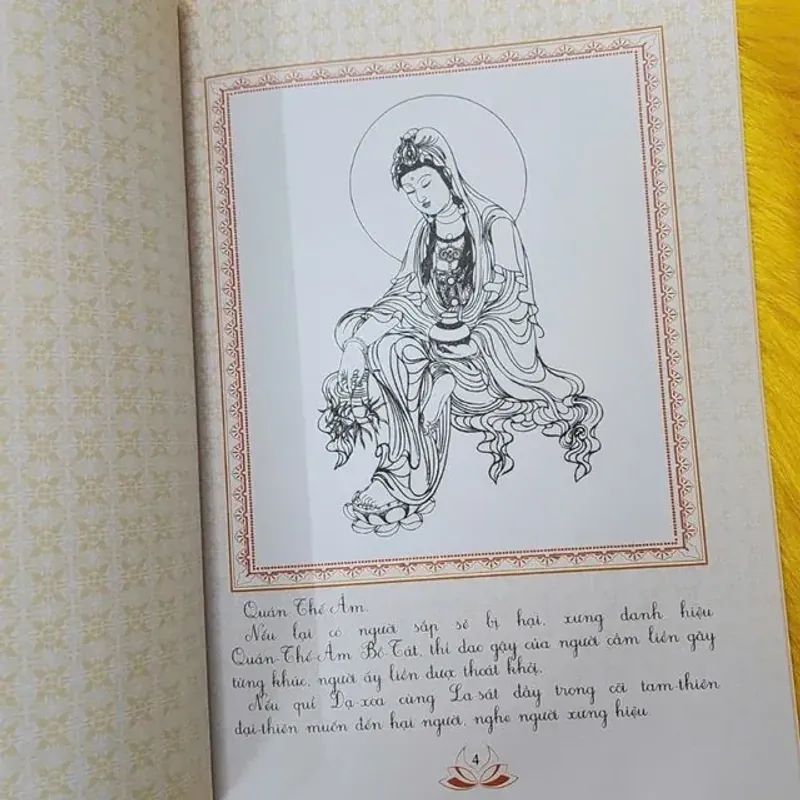 Quán-Thế-Âm.
Nếu lại có người sắp sẽ bị hại, xưng danh hiệu
Quán-Thế-Âm Bồ-Tát, thì dao gậy của người cầm liền gãy
từng khúc, người ấy liền được thoát khỏi.
Nếu quỉ Dạ-xoa cùng La-sát đầy trong cõi tam-thiên
đại-thiên muốn đến hại người, nghe người xưng hiệu
4